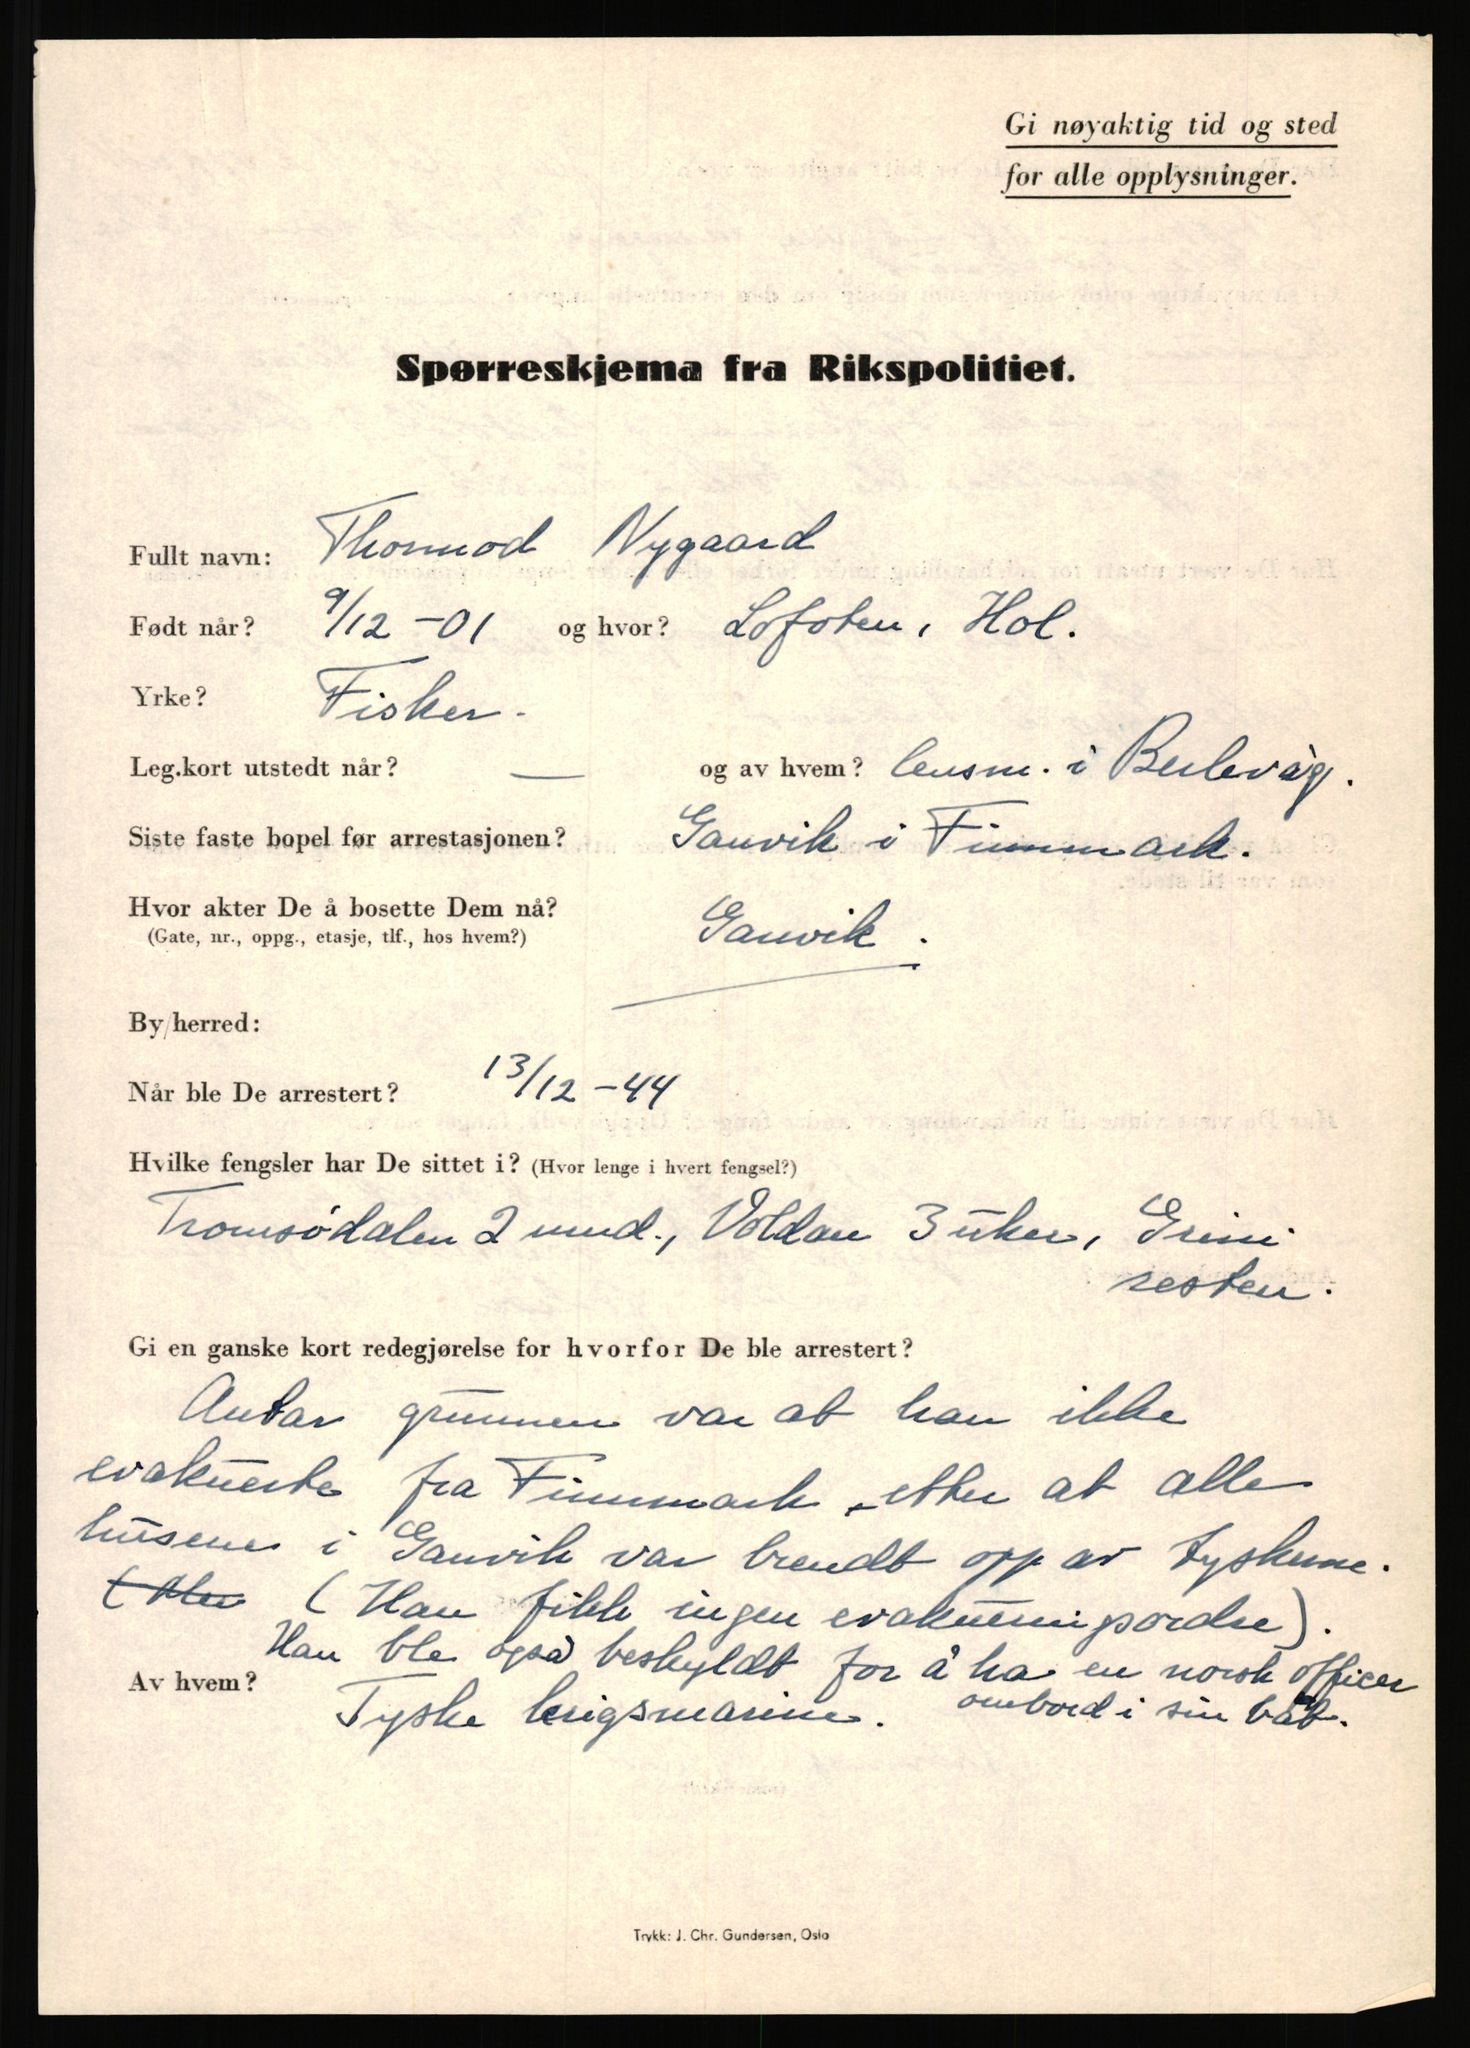 Gi nøyaktig tid og sted
for alle opplysninger.
Spørreskjema fra Rikspolitiet.
Fullt navn: Thormod Nygaard
Født når? 9/12 -01 og hvor? Lofoten, Hol.
Yrke? Fisker.
Leg.kort utstedt når? — og av hvem? lensm. i Berlevåg.
Siste faste bopel før arrestasjonen? Gamvik i Finnmark.
Hvor akter De å bosette Dem nå? Gamvik.
(Gate, nr., oppg., etasje, tlf., hos hvem?)
By/herred:
Når ble De arrestert? 13/12 -44
Hvilke fengsler har De sittet i? (Hvor lenge i hvert fengsel?)
Tromsødalen 2 mnd., Voldan 3 uker, Grini
resten.
Gi en ganske kort redegjørelse for hvorfor De ble arrestert?
Antar grunnen var at han ikke
evakuerte fra Finnmark, etter at alle
husene i Gamvik var brendt opp av tyskerne.
(Han fikk ingen evakueringsordre).
Han ble også beskyldt for å ha en norsk officer
ombord i sin båt.
Av hvem? Tyske krigsmarine.
Trykk: J. Chr. Gundersen, Oslo